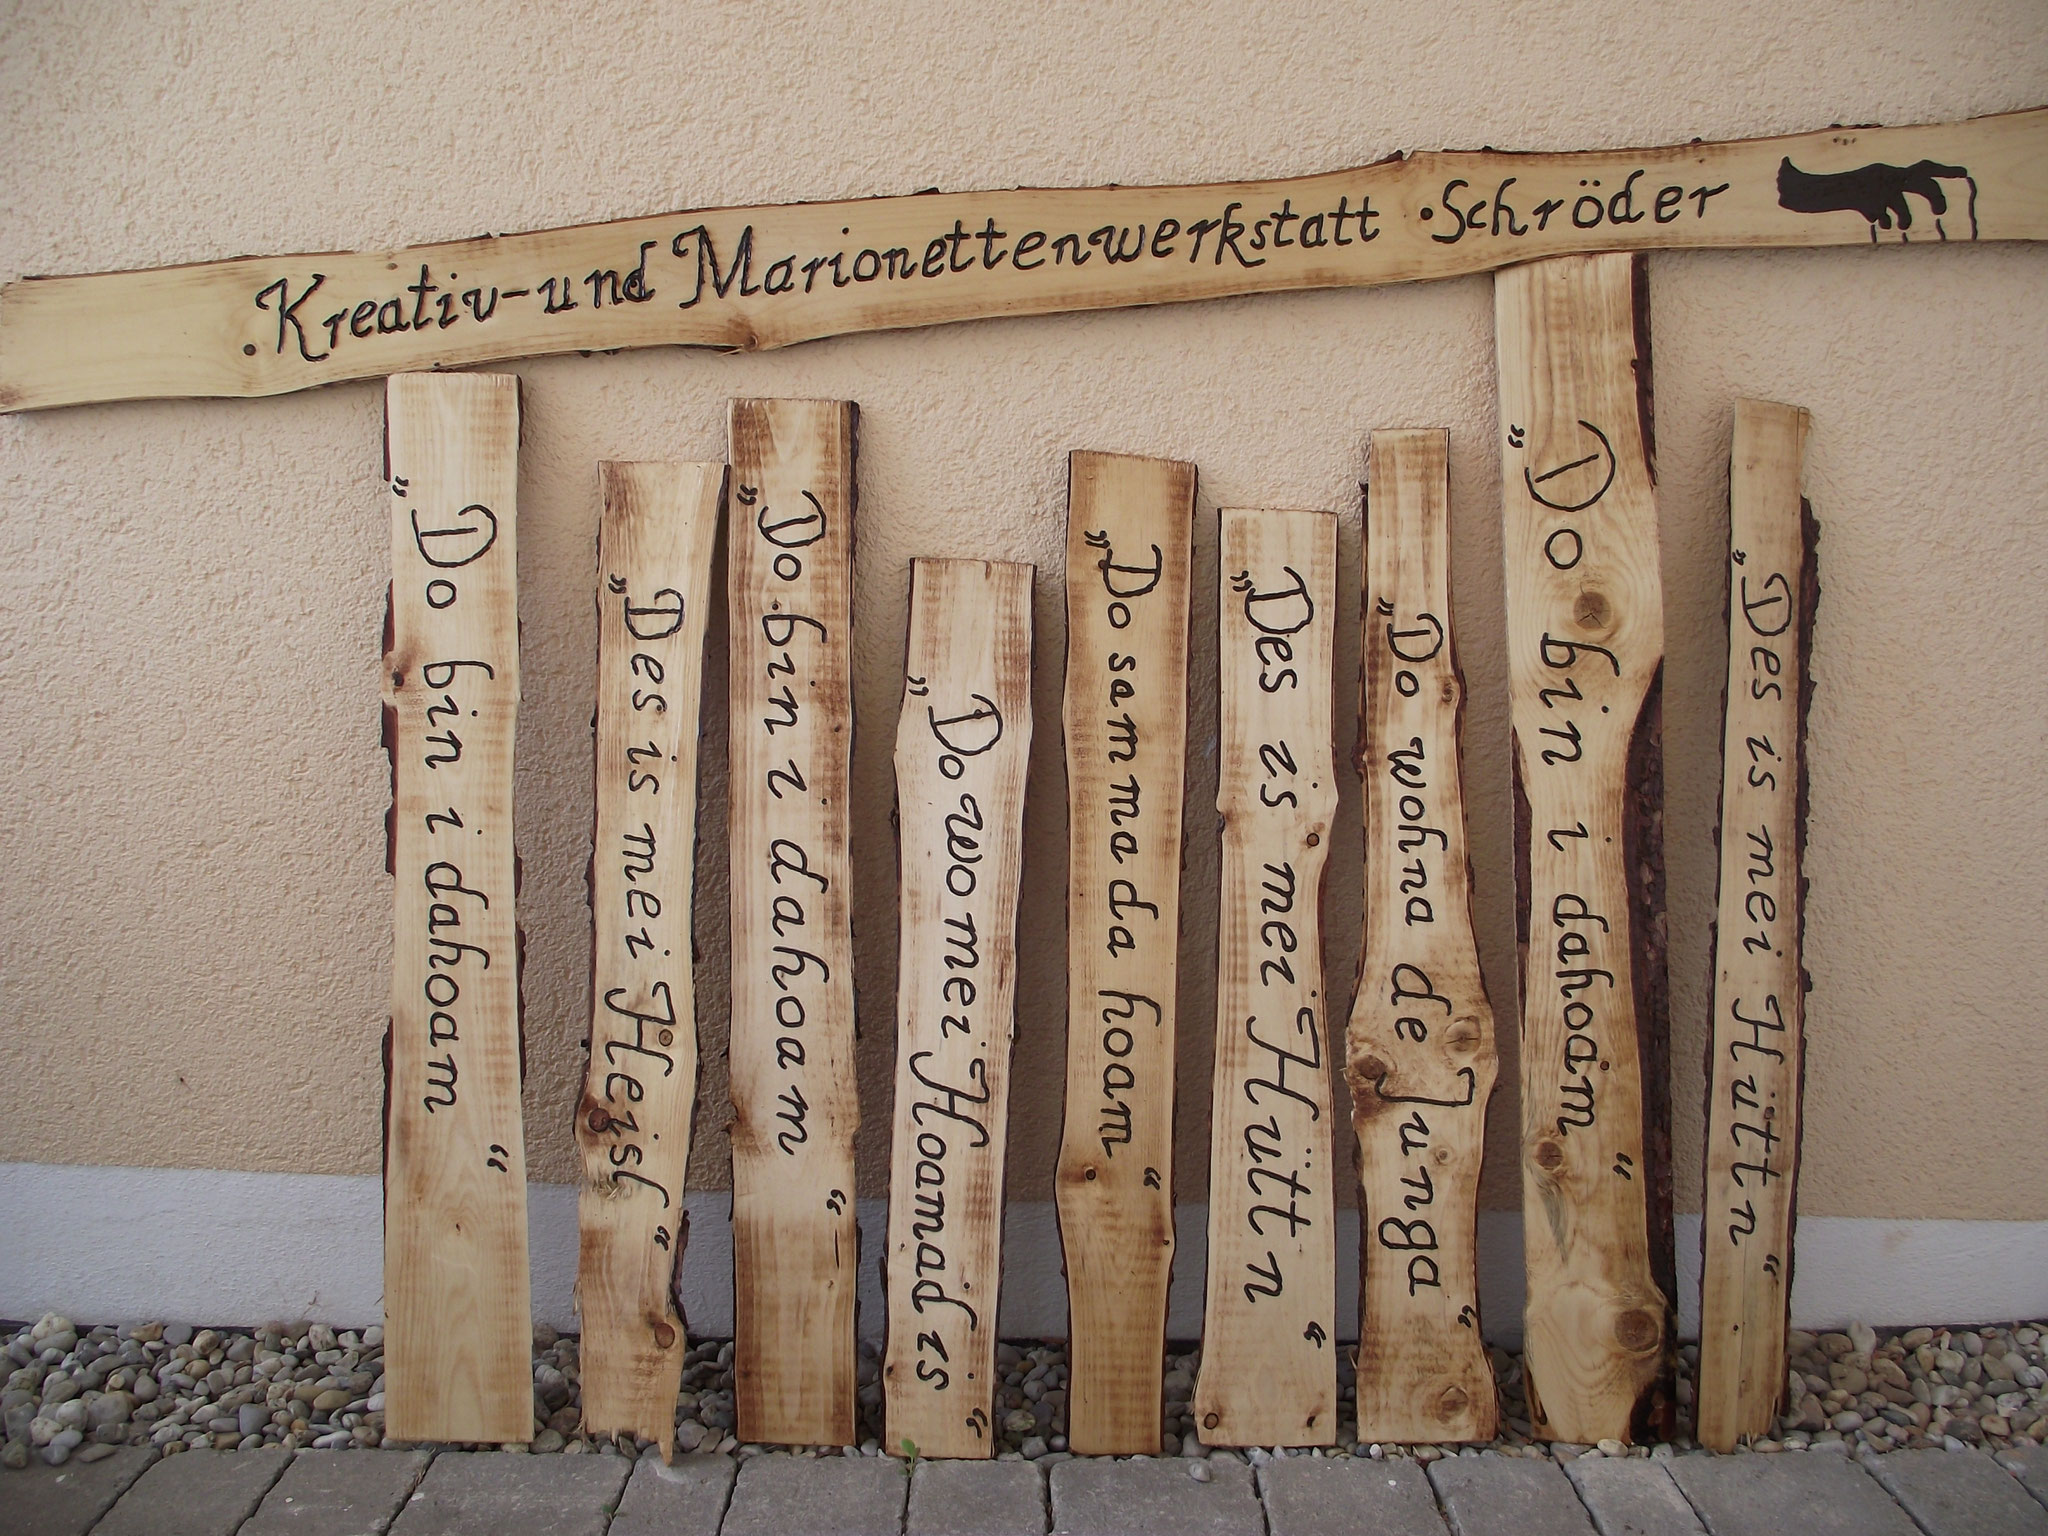 Kreativ-und Marionettenwerkstatt • Schröder
„Do bin i dahoam“
„Des is mei Heisl“
„Do bin i dahoam“
„Do wo mei Hoamad is“
„Do samma da hoam“
„Des is mei Hüttn“
„Do wohna de Junga“
„Do bin i dahoam“
„Des is mei Hüttn“